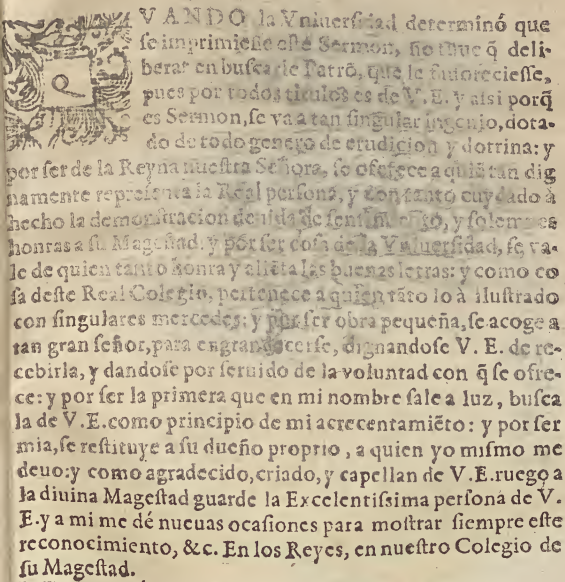 QVANDO la Vniuersidad determinó que
se imprimiesse este Sermon, no tuue q̃ deli-
berar en busca de Patrõ, que le fauoreciesse,
pues por todos titulos es de V. E. y assi porq̃
es Sermon, se va a tan singular ingenio, dota-
do de todo genero de erudicion y dotrina: y
por ser de la Reyna nuestra Señora, se ofrece a quiẽ tan dig
namente representa la Real persona, y con tanto cuydado à
hecho la demonstracion deuida de sentimiento, y solemnes
honras a su Magestad: y por ser cosa de la Vniuersidad, se va-
le de quien tanto honra y aliẽta las buenas letras: y como co
sa deste Real Colegio, pertenece a quien tãto lo à ilustrado
con singulares mercedes: y por ser obra pequeña, se acoge a
tan gran señor, para engrandecerse, dignandose V. E. de re-
cebirla, y dandose por seruido de la voluntad con q̃ se ofre-
ce: y por ser la primera que en mi nombre sale a luz, busca
la de V.E. como principio de mi acrecentamiẽto: y por ser
mia, se restituye a su dueño proprio, a quien yo mismo me
deuo: y como agradecido, criado, y capellan de V.E. ruego a
la diuina Magestad guarde la Excelentissima persona de V.
E. y a mi me dé nueuas ocasiones para mostrar siempre este
reconocimiento, &c. En los Reyes, en nuestro Colegio de
su Magestad.